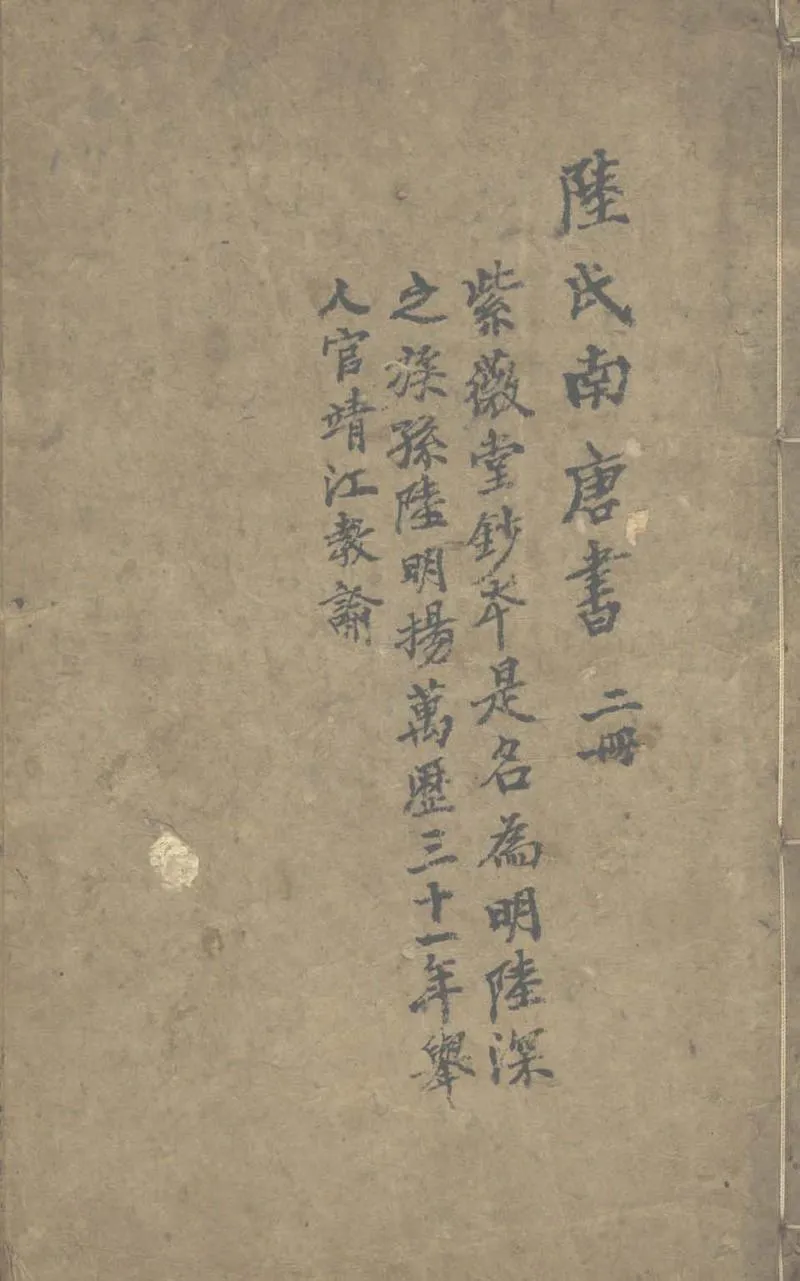 陸氏南唐書 二冊
紫薇堂鈔夲是名為明陸深
之族孫陸明揚萬歷三十一年舉
人官靖江教諭